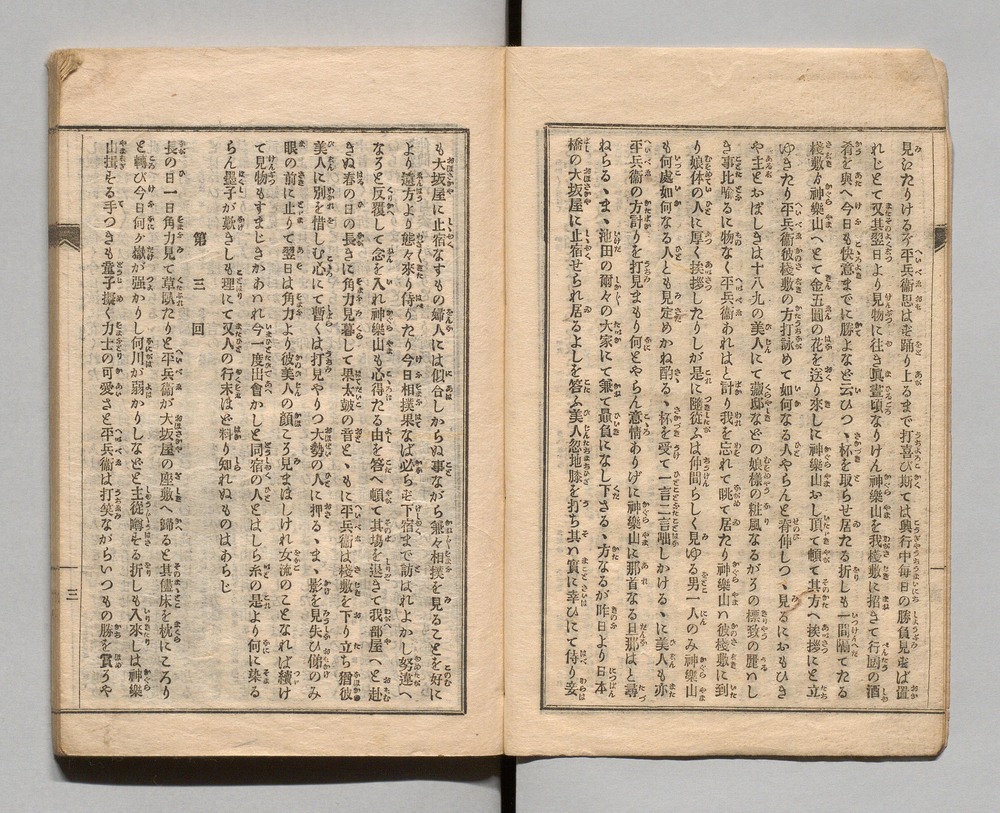 見江たりける尓平兵衞思は老踊り上るまで打喜び斯ては興行中毎日の勝負見老ば置
れじとて又其翌日より見物に往き眞晝頃なりけん神樂山を我棧敷に招きて行厨の酒
肴を與へ今日も快意までに勝てよなど云ひつゝ杯を取らせ居たる折しも一間隔てたる
棧敷ゟ神樂山へとて金五圓の花を送り來しに神樂山おし頂て頓て其方へ挨拶にと立
ゆきたり平兵衞彼棧敷の方打詠めて如何なる人やらんと脊伸しつゝ見るにおもひき
や主とおぼしきは十八九の美人にて藏邸などの娘様の粧風なるがその標致の麗いし
き事比喩るに物なく平兵衞あれはと計り我を忘れて眺め居たり神樂山ハ彼棧敷に到
り娘体の人に厚く挨拶したりしが是に隨從ふは仲間らしく見ゆる男一人のみ神樂山
も何處如何なる人とも見定めかね酌るゝ杯を受て一言二言話しかけるゝに美人も亦
平兵衞の方計りを打見まもり何とやらん意情ありげに神樂山に那首なる旦那はと尋
ねらるゝまゝ池田の爾々の大家にて兼て最負になし下さるゝ方なるが昨日より日本
橋の大坂屋に止宿せられ居るよしを答ふ美人忽地膝を打ち其ハ實に幸ひにて侍り妾
も大坂屋に止宿なすもの婦人には似合しからぬ事ながら兼々相撲を見ることを好に
より遠方より態々來り侍りたり今日相撲果なば必ら老下宿まで訪はれよかし努違へ
なろと反覆して念を入れ神樂山も心得たる由を答へ頓て其場を退きて我部屋へと赴
きぬ春の日の長きに角力見暮して果太皷の音とゝもに平兵衞は棧敷を下り立ち猶彼
美人に別を惜しむ心にて暫くは打見やりつ大勢の人に押るゝまゝ影を見失ひ俤のみ
眼の前に止りて翌日は角力より彼美人の顔ころ見まほしけれ女流のことなれば續け
て見物もすまじきかあいれ今一度出會かしと同宿の人とはしら糸の是より何に染る
らん墨子が歎きしも理にて又人の行末ほど料り知れぬものはあらじ
第三回
長の日一日角力見て草臥たりと平兵衞が大坂屋の座敷へ歸ると其儘床を枕にころり
と轉び今日何ヶ嶽が强かりし何川が弱かりしなどと主從噂せる折しも入來しは神樂
山揖せる手つきも童子擬く力士の可愛さと平兵衞は打笑ながらいつもの勝を賞うや
三